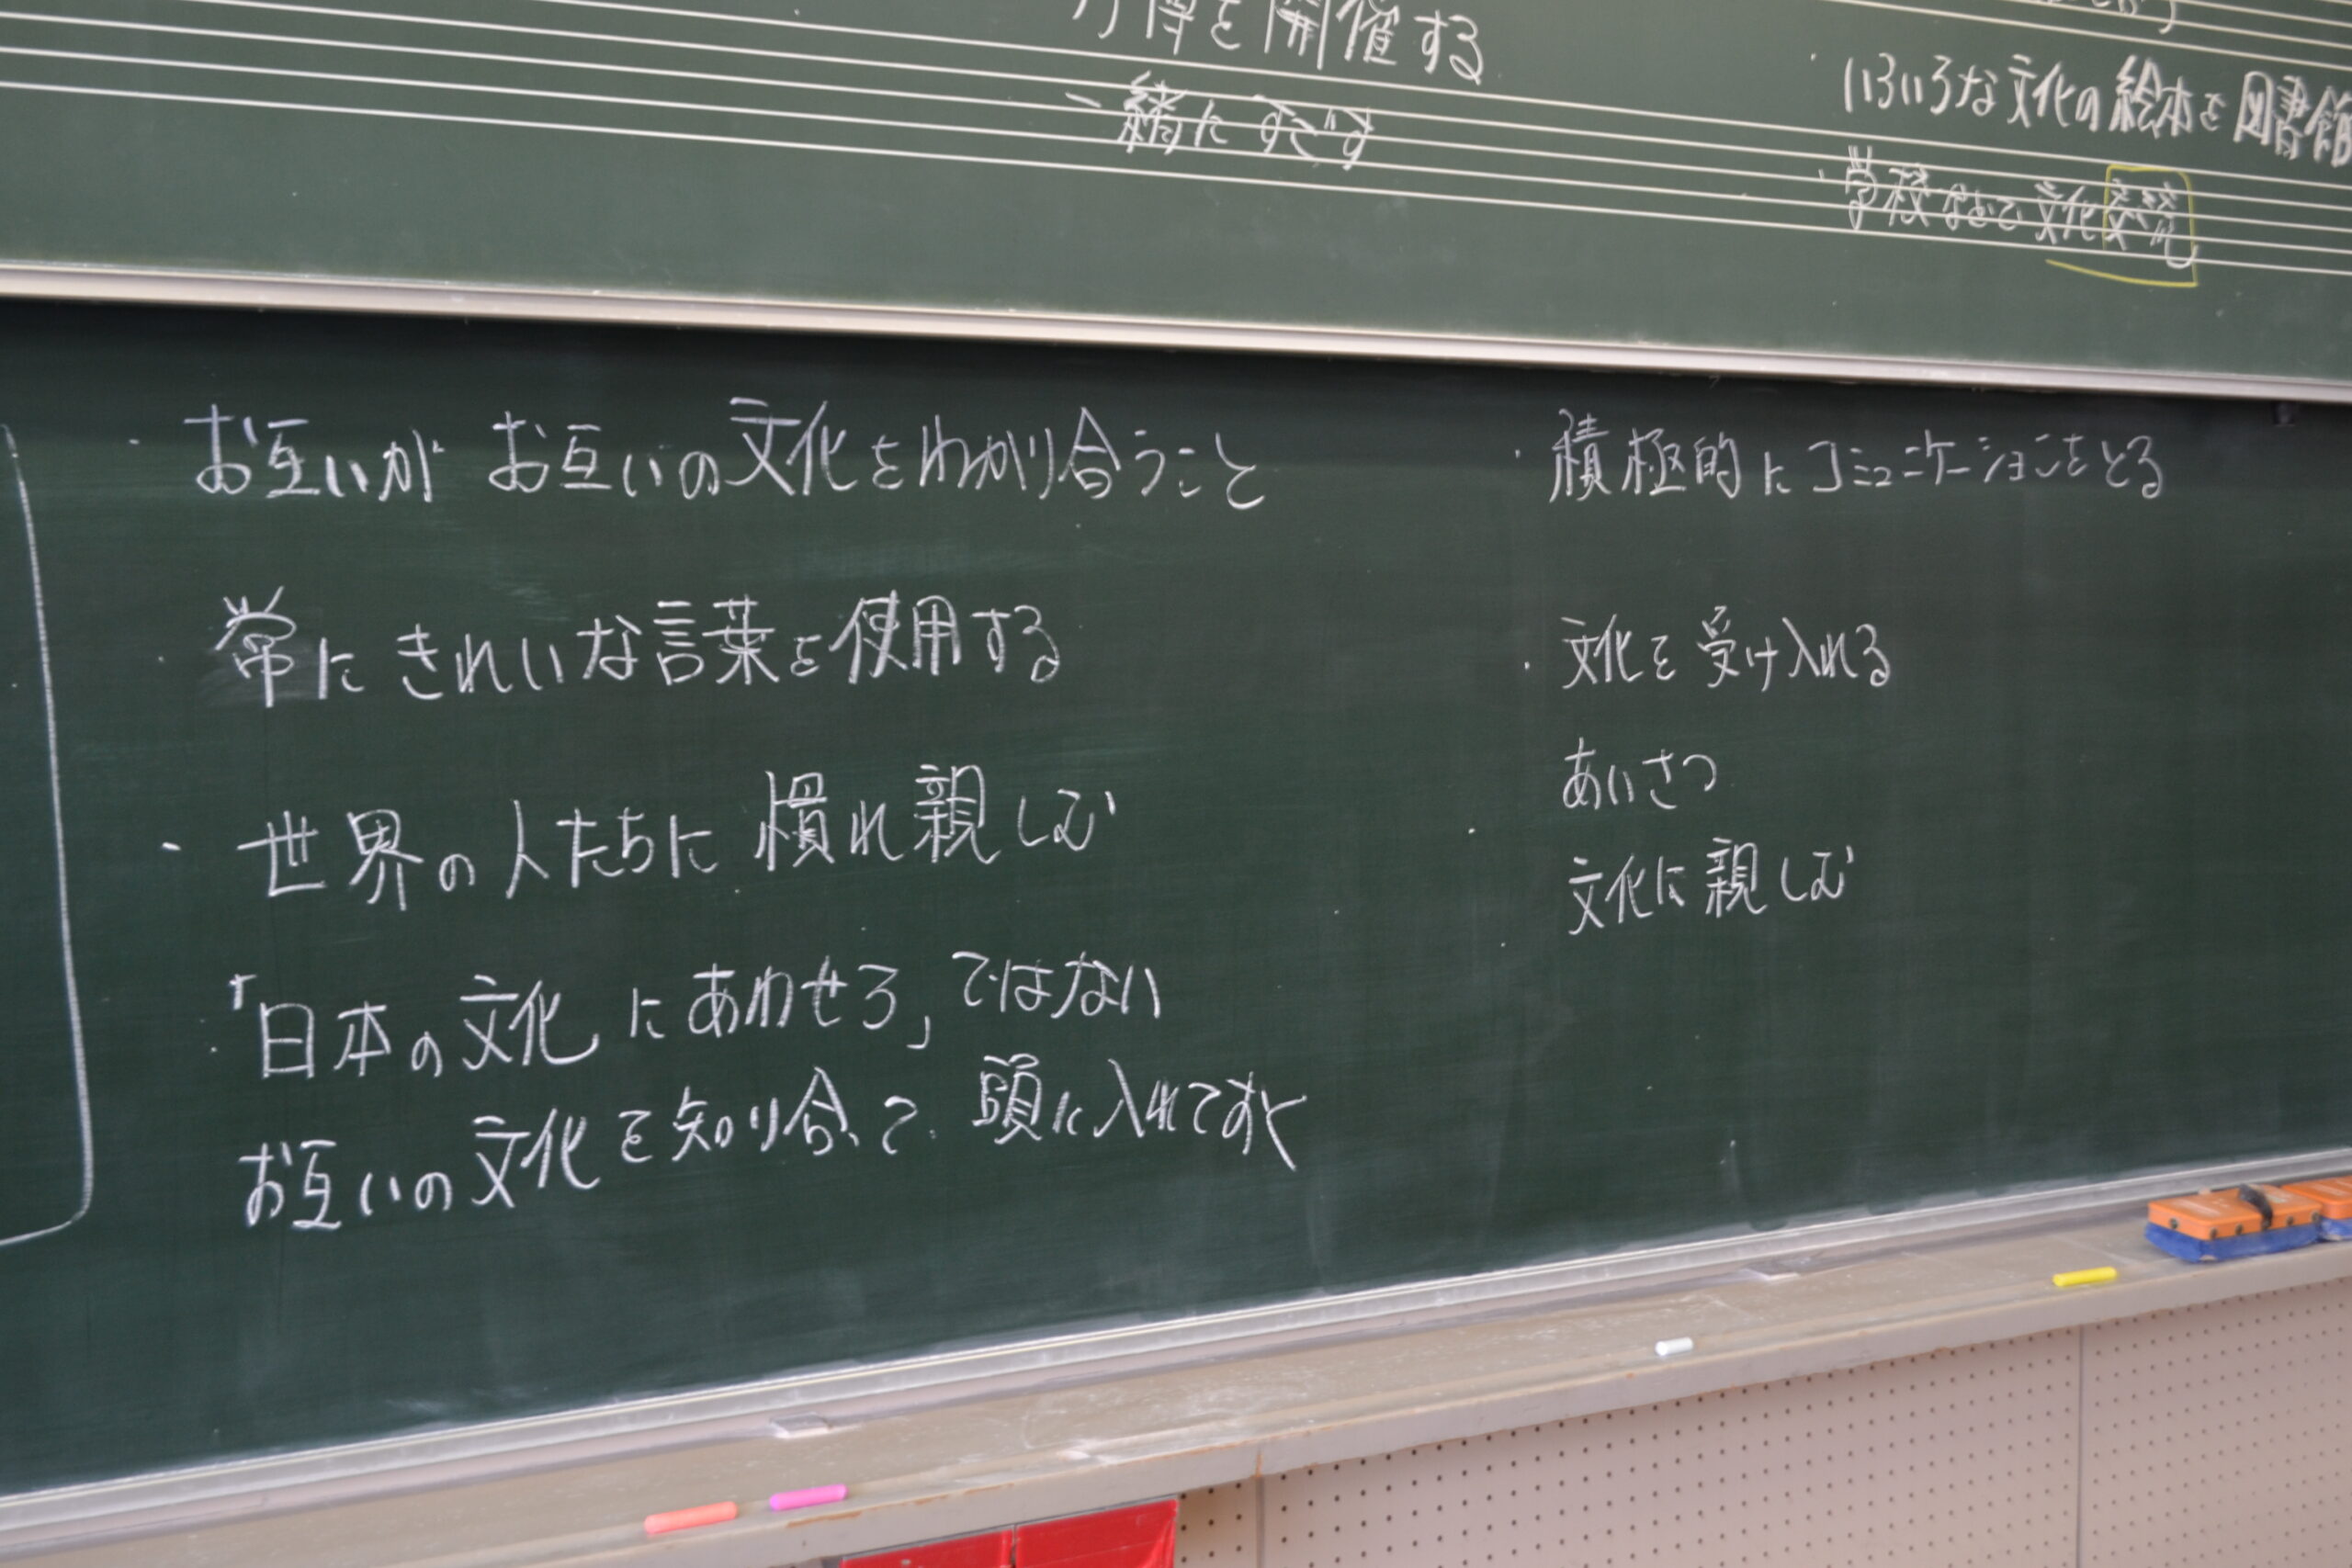 を開催する
一緒にすごす
・いろいろな文化の絵本を図書館
・学校などで文化交流
・お互いがお互いの文化をわかり合うこと
・常にきれいな言葉を使用する
・世界の人たちに慣れ親しむ
・「日本の文化にあわせろ」ではない
お互いの文化を知り合って頭に入れて
・積極的にコミュニケーションをとる
・文化を受け入れる
・あいさつ
・文化に親しむ